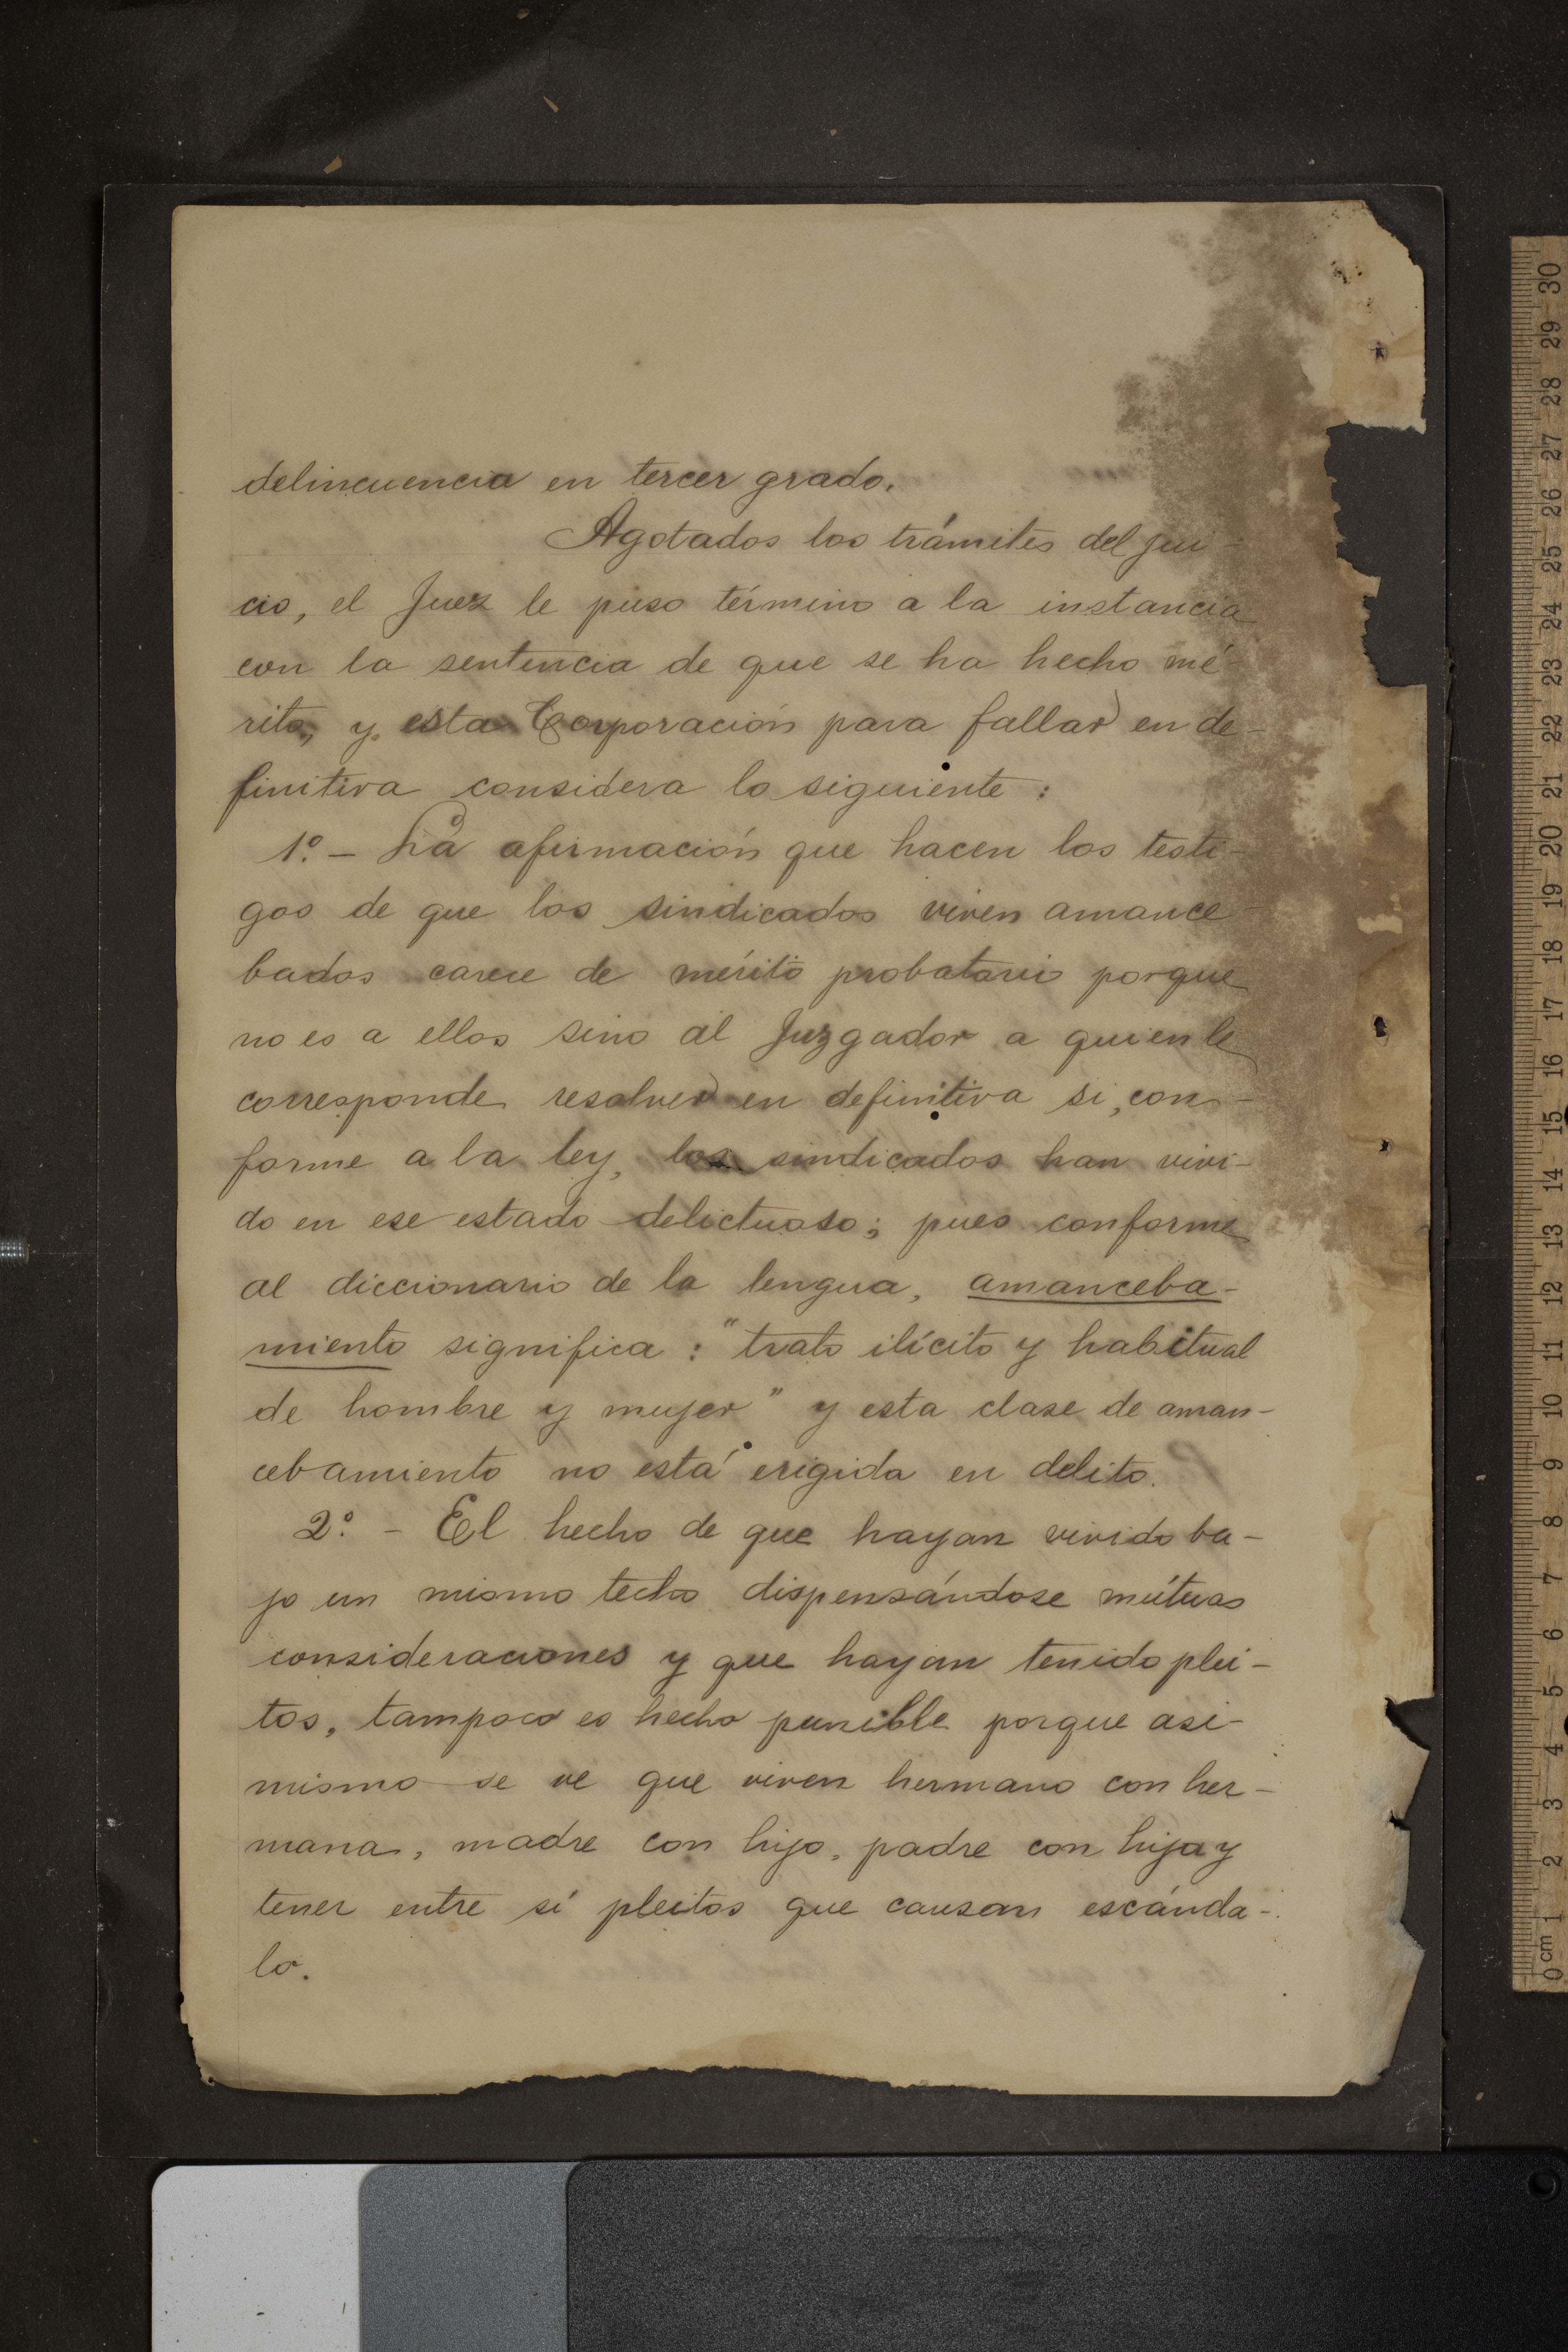 delincuencia en tercer grado.
Agotados los trámites del jui-
cio, el Juez le puso término a la instancia
con la sentencia de que se ha hecho mé-
rito, y esta Corporación para fallar en de-
finitiva considera lo siguiente :
1º. - La afirmación que hacen los testi-
gos de que los sindicados viven amance-
bados carece de mérito probatorio porque
no es a ellos sino al Juzgador a quien le
corresponde resolver en definitiva si, con-
forme a la ley, los sindicados han vivi-
do en ese estado delictuoso; pues conforme
al diccionario de la lengua, amanceba-
miento significa : "trato ilícito y habitual
de hombre y mujer" y esta clase de aman-
cebamiento no está erigida en delito.
2º. - El hecho de que hayan vivido ba-
jo un mismo techo dispensándose mútuas
consideraciones y que hayan tenido plei-
tos, tampoco es hecho punible porque asi-
mismo se ve que viven hermano con her-
mana, madre con hijo, padre con hija y
tener entre sí pleitos que causan escánda-
lo.
0 cm 1 2 3 4 5 6 7 8 9 10 11 12 13 14 15 16 17 18 19 20 21 22 23 24 25 26 27 28 29 30